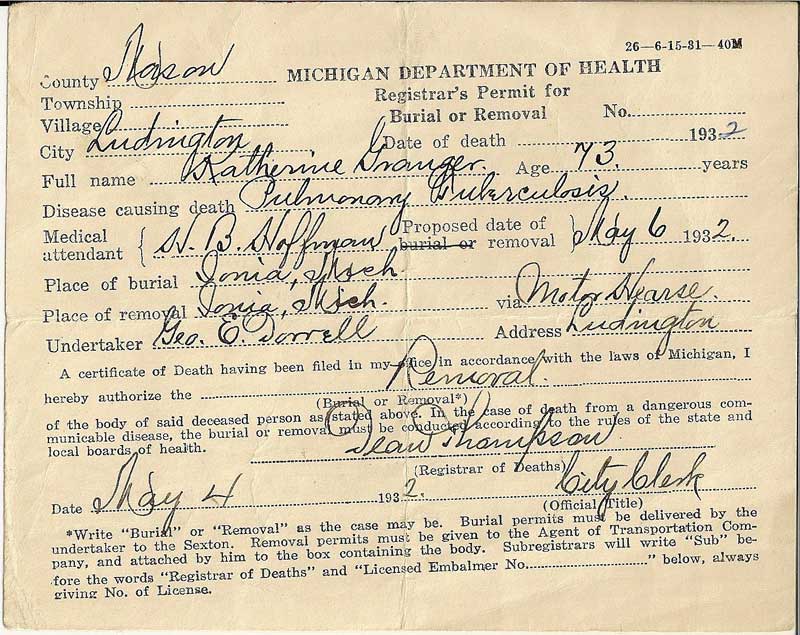 26—6-15-31—40M
County Mason
MICHIGAN DEPARTMENT OF HEALTH
Township
Registrar's Permit for
Village
Burial or Removal No.
City Ludington Date of death 1932
Full name Katherine Granger. Age 73. years
Disease causing death Pulmonary Tuberculosis.
Medical attendant H. B. Hoffman Proposed date of burial or removal May 6 1932.
Place of burial Ionia, Mich
Place of removal Ionia, Mich. via Motor Hearse.
Undertaker Geo. E. Dorrell Address Ludington
A certificate of Death having been filed in my office in accordance with the laws of Michigan, I
hereby authorize the Removal.
(Burial or Removal*)
of the body of said deceased person as stated above. In the case of death from a dangerous com-
municable disease, the burial or removal must be conducted according to the rules of the state and
local boards of health.
Dean Thompson
(Registrar of Deaths)
Date May 4 1932. City Clerk
(Official Title)
*Write "Burial" or "Removal" as the case may be. Burial permits must be delivered by the
undertaker to the Sexton. Removal permits must be given to the Agent of Transportation Com-
pany, and attached by him to the box containing the body. Subregistrars will write "Sub" be-
fore the words "Registrar of Deaths" and "Licensed Embalmer No." below, always
giving No. of License.